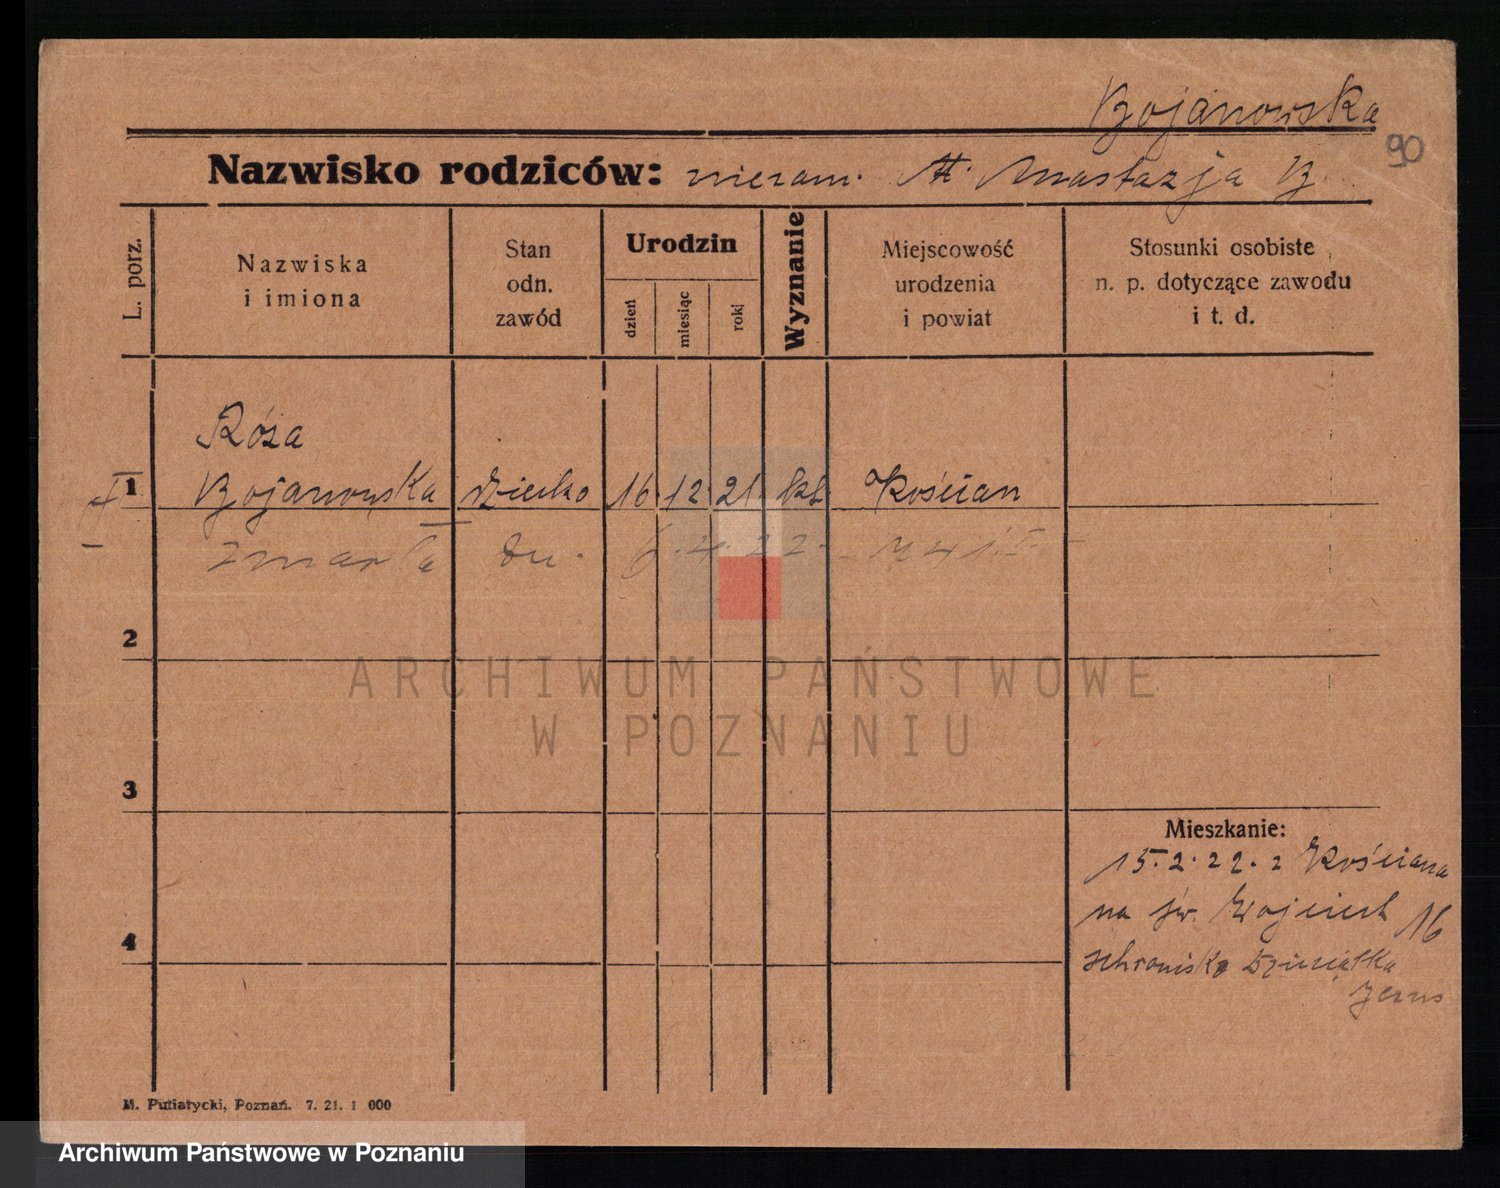 Bojanowska
90
Nazwisko rodziców: niezam. M. Anastazja B.
L. porz.
Nazwiska
i imiona
Stan
odn.
zawód
Urodzin
dzień
miesiąc
rok
Wyznanie
Miejscowość
urodzenia
i powiat
Stosunki osobiste
n. p. dotyczące zawodu
i t. d.
Róża
1 Bojanowska dziecko 16. 12. 21. kt. Kościan
zmarła dn. 6. 4. 22.
2
3
4
Mieszkanie:
15. 2. 22. z Kościana
na św. Wojciech 16
schronisko Dzieciątka
Jezus
M. Putiatycki, Poznań. 7. 21. 1 000
ARCHIWUM PAŃSTWOWE
W POZNANIU
Archiwum Państwowe w Poznaniu